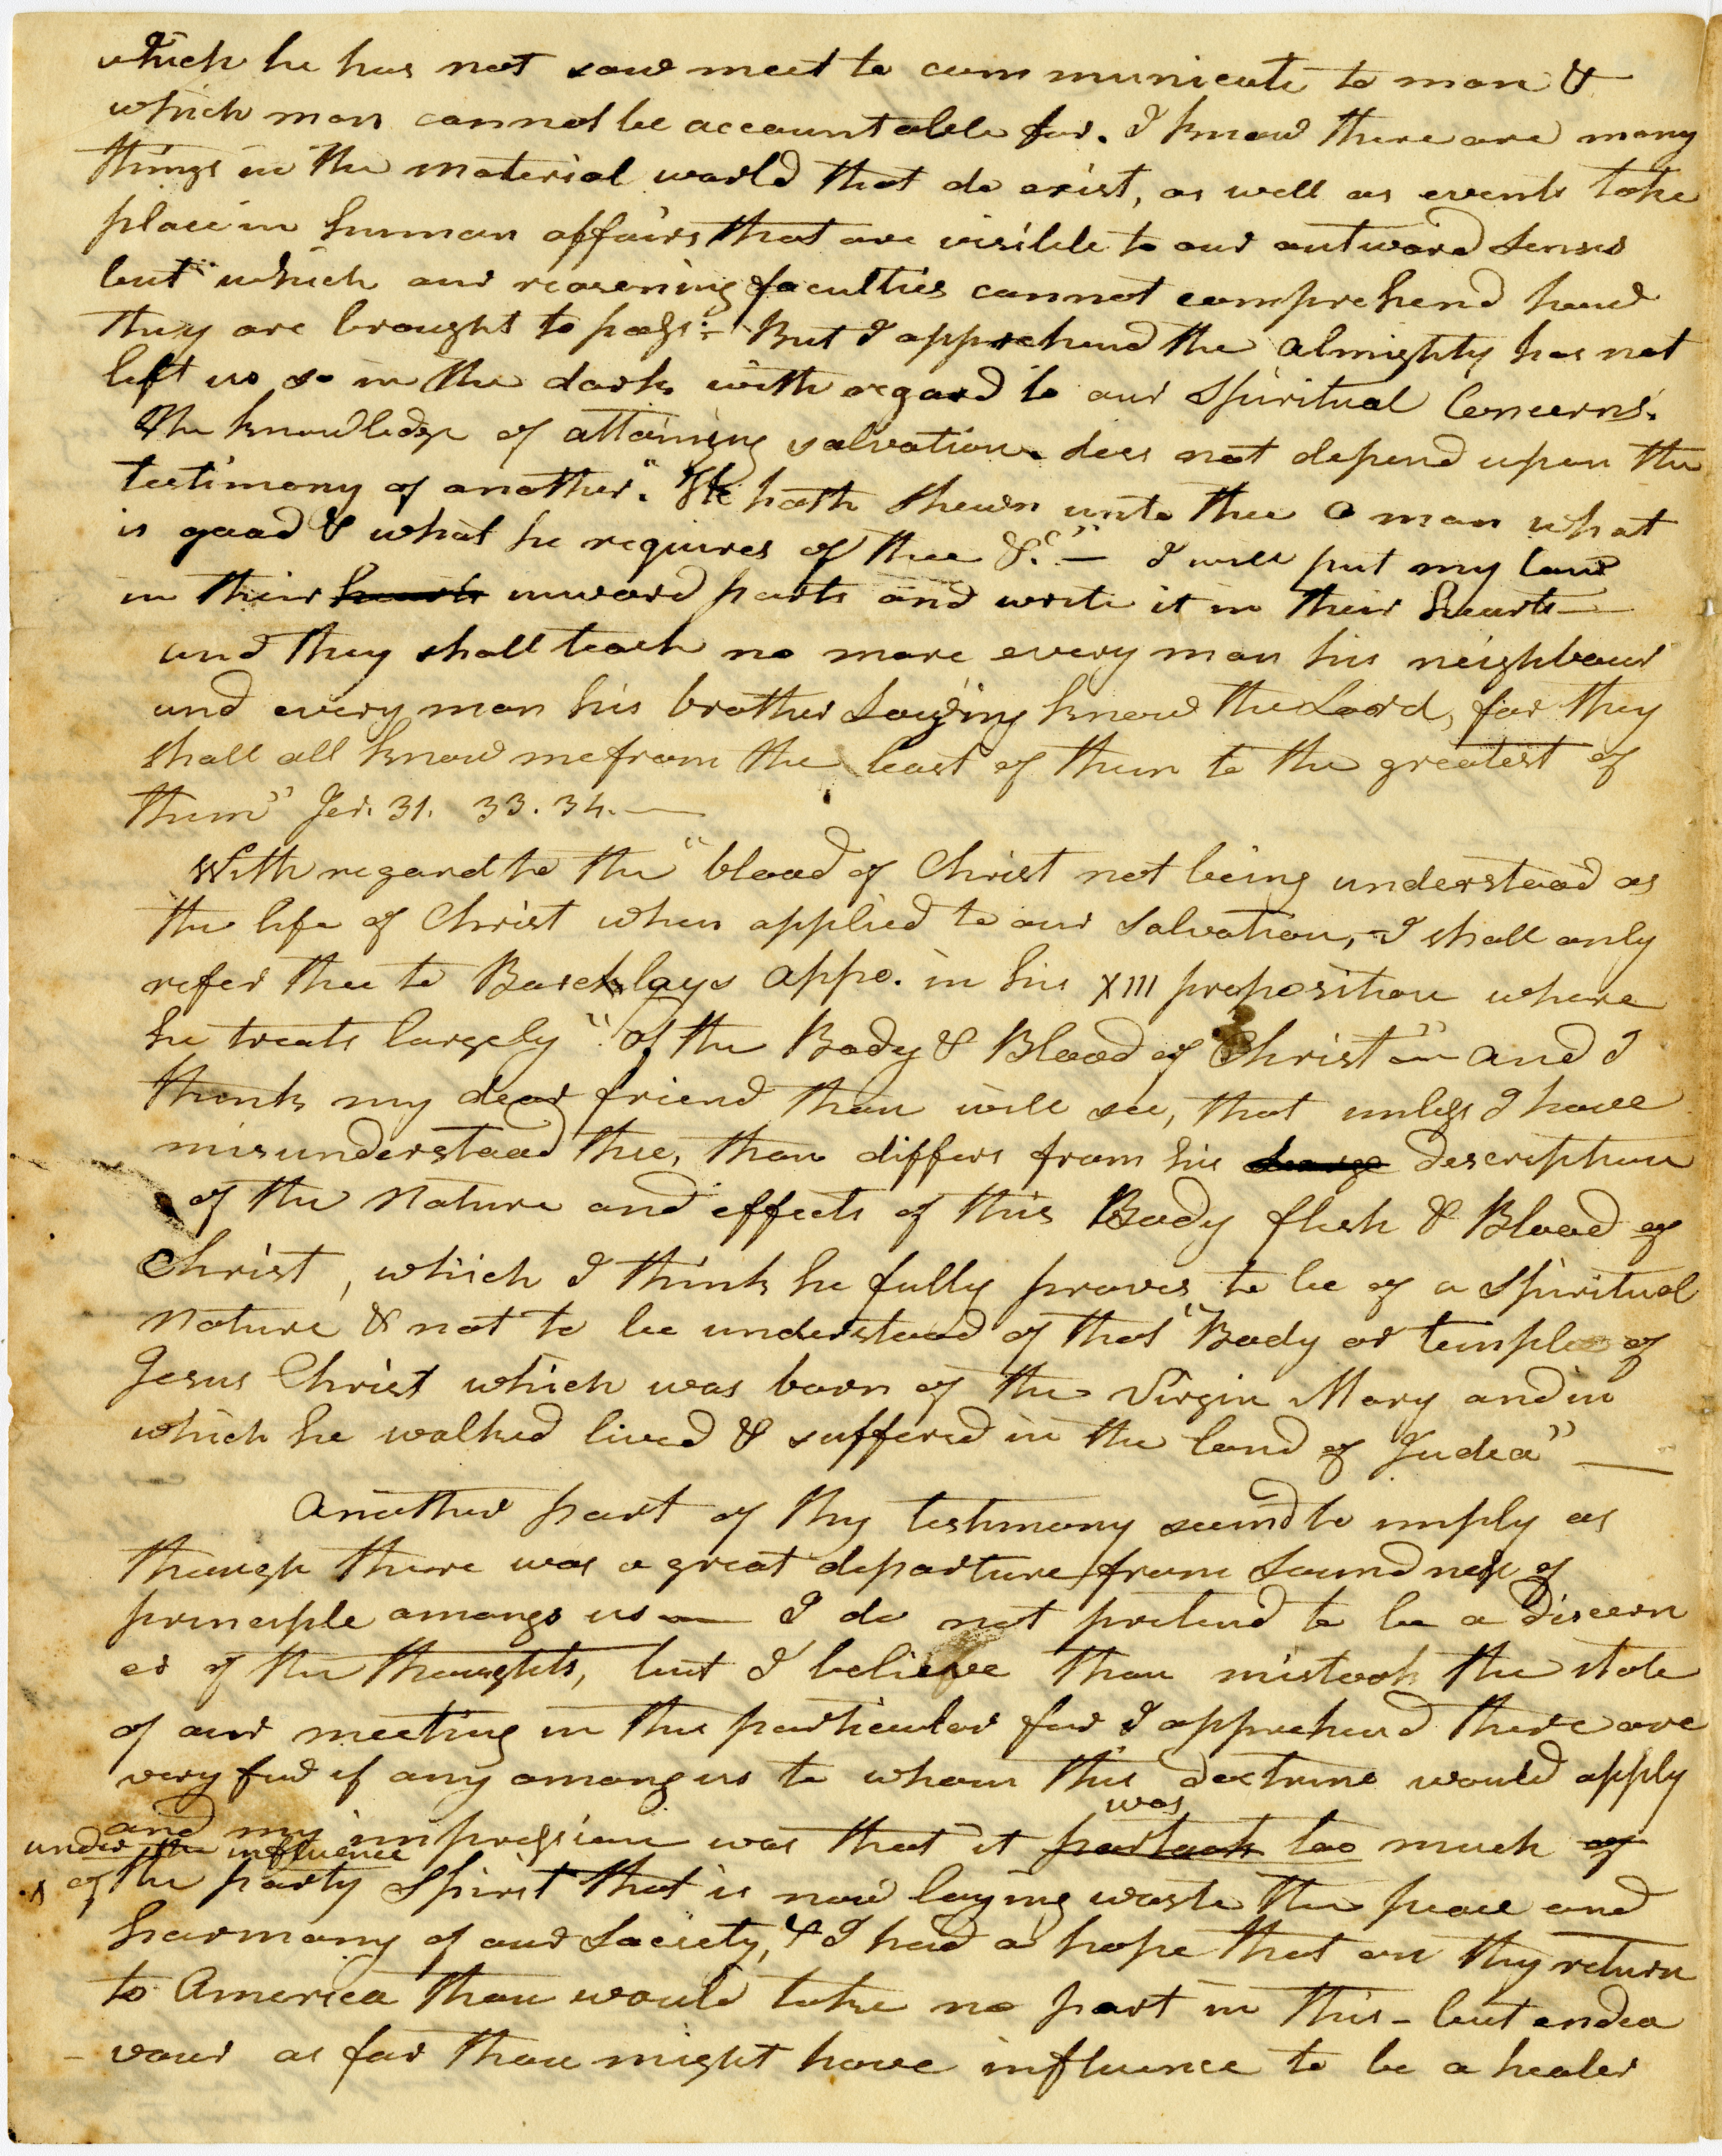 which he has not saw meet to communicate to man &
which man cannot be accountable for. I know there are many
things in the material world that do exist, as well as events take
place in human affairs that are visible to our outward senses
but which our reasoning faculties cannot comprehend how
they are brought to pass:- But I apprehend the Almighty has not
left us so in the dark with regard to our Spiritual Concerns.
The knowledge of attaining salvation does not depend upon the
testimony of another. "He hath shewn unto thee O man what
is good & what he requires of thee &c" — I will put my law
in their hearts inward parts and write it in their hearts —
and they shall teach no more every man his neighbour
and every man his brother saying know the Lord, for they
shall all know me from the least of them to the greatest of
them" Jer. 31. 33. 34. —
With regard to the "blood of Christ not being understood as
the life of Christ when applied to our salvation, - I shall only
refer thee to Barclays appo. in his XIII proposition where
he treats largely "Of the Body & Blood of Christ" — and I
think my dear friend thou will see, that unless I have
misunderstood thee, thou differs from his description
of the Nature and effects of this Body flesh & Blood of
Christ, which I think he fully proves to be of a Spiritual
Nature & not to be understood of that "Body or temple of
Jesus Christ which was born of the Virgin Mary and in
which he walked lived & suffered in the land of Judea" —
Another part of thy testimony seem'd to imply as
though there was a great departure from soundness of
principle amongs us — I do not pretend to be a discern
er of the thoughts, but I believe thou mistook the state
of our meeting in this particular for I apprehend there are
very few if any among us to whom this doctrine would apply
was
and my impression was that it partook too much of
under the influence
x of the party Spirit that is now laying waste the peace and
harmony of our Society, & I had a hope that on thy return
to America thou would take no part in this - but endea
- vour as far thou might have influence to be a healer